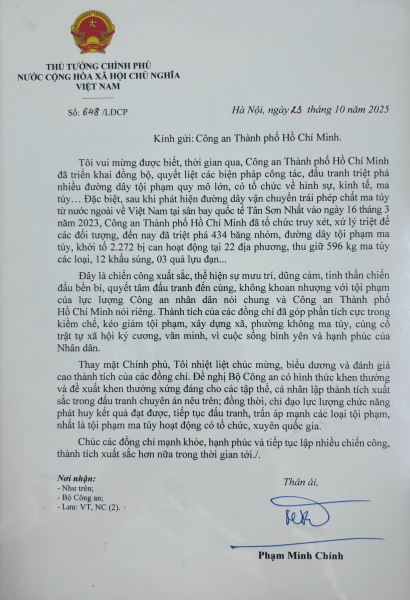 THỦ TƯỚNG CHÍNH PHỦ
NƯỚC CỘNG HÒA XÃ HỘI CHỦ NGHĨA
VIỆT NAM
Số: 648 /LĐCP
Hà Nội, ngày 23 tháng 10 năm 2025
Kính gửi: Công an Thành phố Hồ Chí Minh.
Tôi vui mừng được biết, thời gian qua, Công an Thành phố Hồ Chí Minh
đã triển khai đồng bộ, quyết liệt các biện pháp công tác, đấu tranh triệt phá
nhiều đường dây tội phạm quy mô lớn, có tổ chức về hình sự, kinh tế, ma
túy... Đặc biệt, sau khi phát hiện đường dây vận chuyển trái phép chất ma túy
từ nước ngoài về Việt Nam tại sân bay quốc tế Tân Sơn Nhất vào ngày 16 tháng 3
năm 2023, Công an Thành phố Hồ Chí Minh đã tổ chức truy xét, xử lý triệt để
các đối tượng, đến nay đã triệt phá 434 băng nhóm, đường dây tội phạm ma
túy, khởi tố 2.272 bị can hoạt động tại 22 địa phương, thu giữ 596 kg ma túy
các loại, 12 khẩu súng, 03 quả lựu đạn...
Đây là chiến công xuất sắc, thể hiện sự mưu trí, dũng cảm, tinh thần chiến
đấu bền bỉ, quyết tâm đấu tranh đến cùng, không khoan nhượng với tội phạm
của lực lượng Công an nhân dân nói chung và Công an Thành phố
Hồ Chí Minh nói riêng. Thành tích của các đồng chí đã góp phần tích cực trong
kiềm chế, kéo giảm tội phạm, xây dựng xã, phường không ma túy, củng cố
trật tự xã hội kỷ cương, văn minh, vì cuộc sống bình yên và hạnh phúc của
Nhân dân.
Thay mặt Chính phủ, Tôi nhiệt liệt chúc mừng, biểu dương và đánh giá
cao thành tích của các đồng chí. Đề nghị Bộ Công an có hình thức khen thưởng
và đề xuất khen thưởng xứng đáng cho các tập thể, cá nhân lập thành tích xuất
sắc trong đấu tranh chuyên án nêu trên; đồng thời, chỉ đạo lực lượng chức năng
phát huy kết quả đạt được, tiếp tục đấu tranh, trấn áp mạnh các loại tội phạm,
nhất là tội phạm ma túy hoạt động có tổ chức, xuyên quốc gia.
Chúc các đồng chí mạnh khỏe, hạnh phúc và tiếp tục lập nhiều chiến công,
thành tích xuất sắc hơn nữa trong thời gian tới./.
Nơi nhận:
- Như trên;
- Bộ Công an;
- Lưu: VT, NC (2).
Thân ái,
Phạm Minh Chính